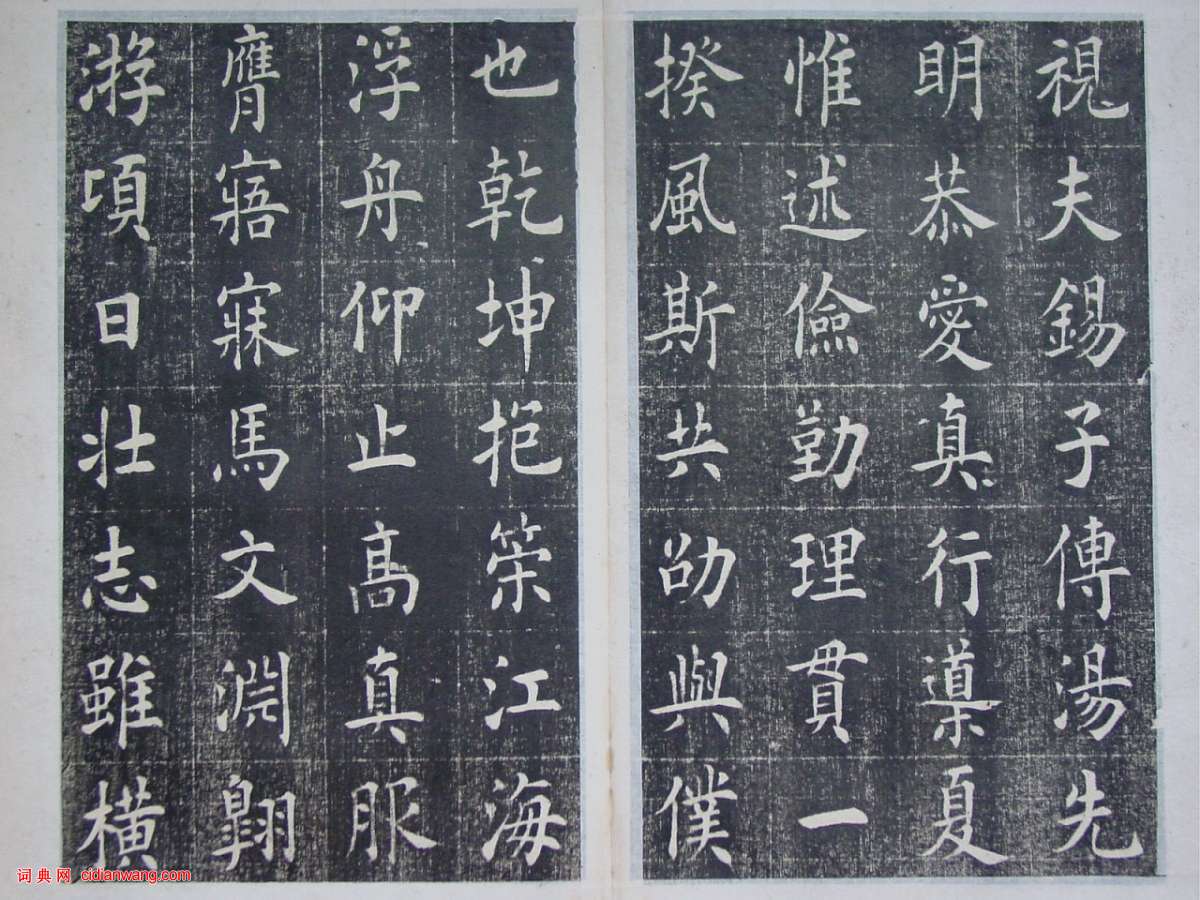 視夫錫子傳湯先
明恭愛真行導夏
惟述儉勤理貫一
揆風斯共劭與僕
也乾坤抱榮江海
浮舟仰止高真服
膺寤寐馬文淵翱
游頃日壯志雖橫
词典网 cidianwang.com